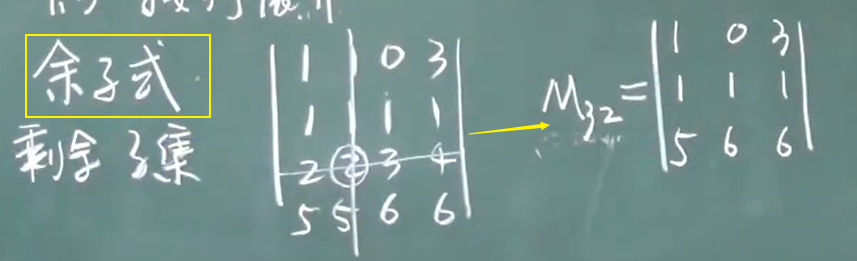 余子式
剩余子集
1 1 0 3
1 1 1 1
2 2 3 4
5 5 6 6
M₃₂=
1 0 3
1 1 1
5 6 6